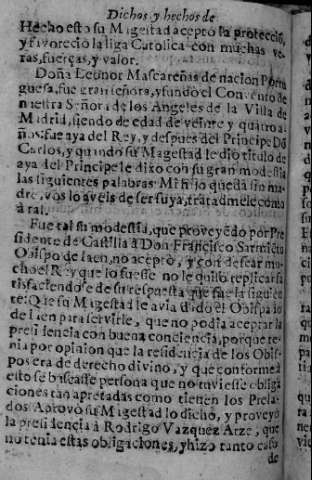 Dichos y hechos de
Hecho esto su Magestad acepto la proteccio,
y favorecio la liga Catolica con muchas ve-
ras, fuerças, y valor.
Doña Leonor Mascareñas de nacion Portu
guesa, fue gran señora, y fundo el Convento de
nuestra Señora de los Angeles de la Villa de
Madrid, siendo de edad de veinte y quatro a-
ños: fue aya del Rey, y despues del Principe Dō
Carlos, y quando su Magestad le dio titulo de
aya del Principe le dixo con su gran modestia
las siguientes palabras: Mi hijo queda sin ma-
dre, vos lo aveis de ser suya, tratadmele como
à tal.
Fue tal su modestia, que proveyēdo por Pre
sidente de Castilla à Don Francisco Sarmiēto
Obispo de Iaen, no acepto, y con desear mu-
cho el Rey que lo fuesse no le quiso replicar sa
tisfaciendose de su respuesta que fue la siguiē
te: Que su Magestad le avia dado el Obispado
de Iaen para servirle, que no podia aceptar la
presidencia con buena conciencia, porque te-
nia por opinion que la residencia de los Obis-
pos era de derecho divino, y que conforme à
esto se buscasse persona que no tuviesse obliga
ciones tan apretadas como tienen los Prela-
dos. Aprovò su Magestad lo dicho, y proveyò
la presidencia à Rodrigo Vazquez Arze, que
no tenia estas obligaciones, y hizo tanto caso
de